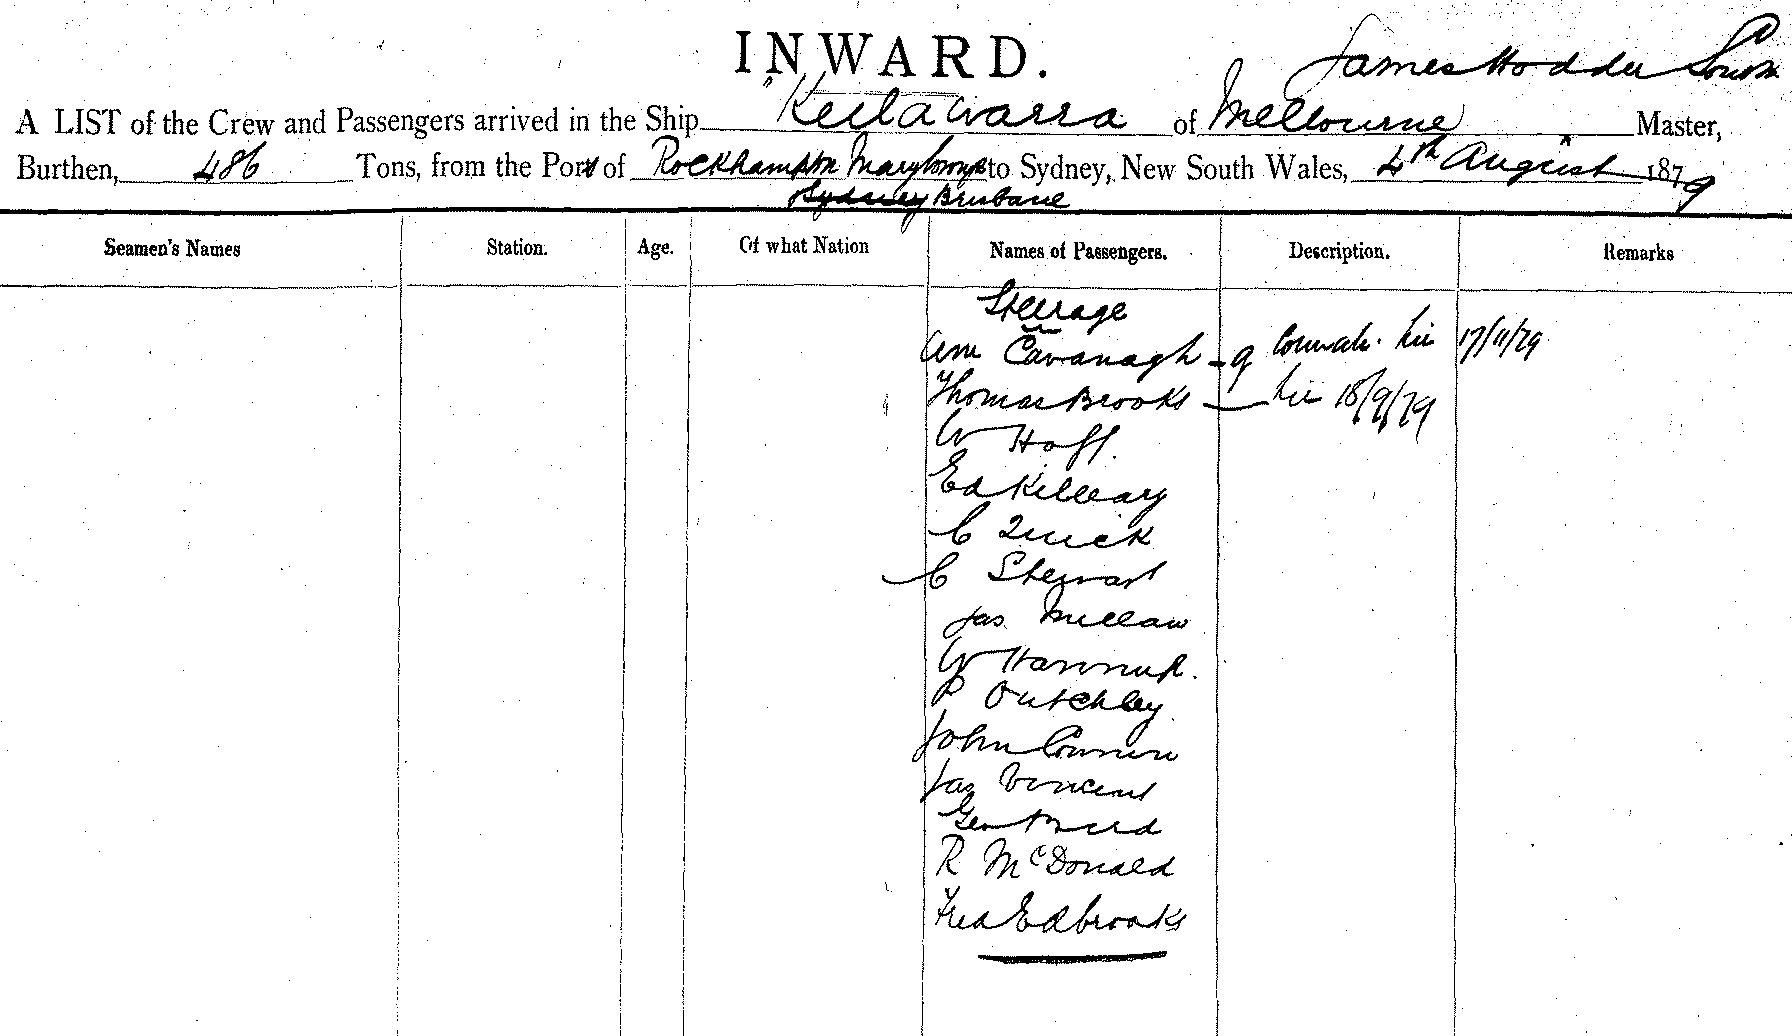 INWARD.
James Hodder
A LIST of the Crew and Passengers arrived in the Ship "Keilawarra of Melbourne Master,
Burthen, 486 Tons, from the Port of Rockhampton Maryboro to Sydney, New South Wales, 4th August 1879
Sydney Brisbane
Seamen's Names Station. Age. Of what Nation Names of Passengers. Description. Remarks
Steerage
Ann Cavanagh 17/11/79
Thomas Brooks 18/9/79
W Hoff.
Ed Killeary
C Quick
C Stewart
Jas
W
P Outchley
John
Jas Vincent
Geo
R McDonald
Fred Edbrooks